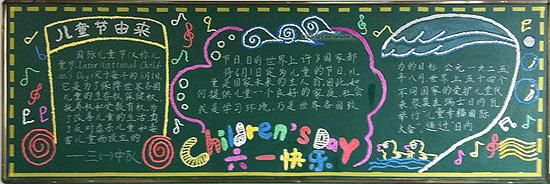 儿童节由来
国际儿童节(又称儿
童节
)定于每年的6月1日,
它是为了保障世界各国
儿童的生存权、保健权、
抚养权和受教育权,为
了改善儿童的生活,为
了反对虐杀儿童和毒
害儿童而设立的
——三(一)中队
节日目的世界上许多国家都
将6月1日定为儿童的节日。儿
童是国家未来的主人翁,因此如
何提供儿童一个良好的家庭、社会
或是学习环境,乃是世界各国致
Children's Day
六一快乐
力的目标。公元一九二五
年八月世界上五十四个
不同国家的爱护儿童代
表,聚集在瑞士日内瓦
举行“儿童幸福国际
大会”,通过“日内